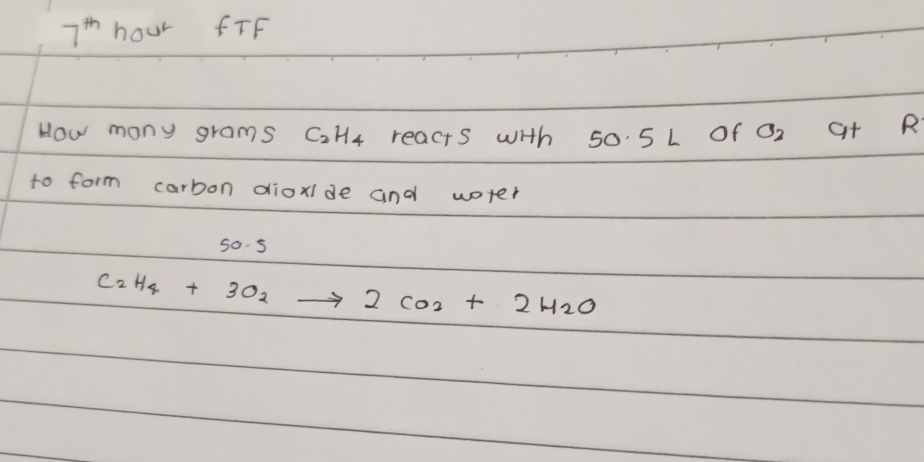 7th hour fTF
How many grams C2H4 reacts with 50.5 L Of O2 at
to form carbon dioxide and water
50.5
C2H4 + 3O2 → 2 CO2 + 2H2O